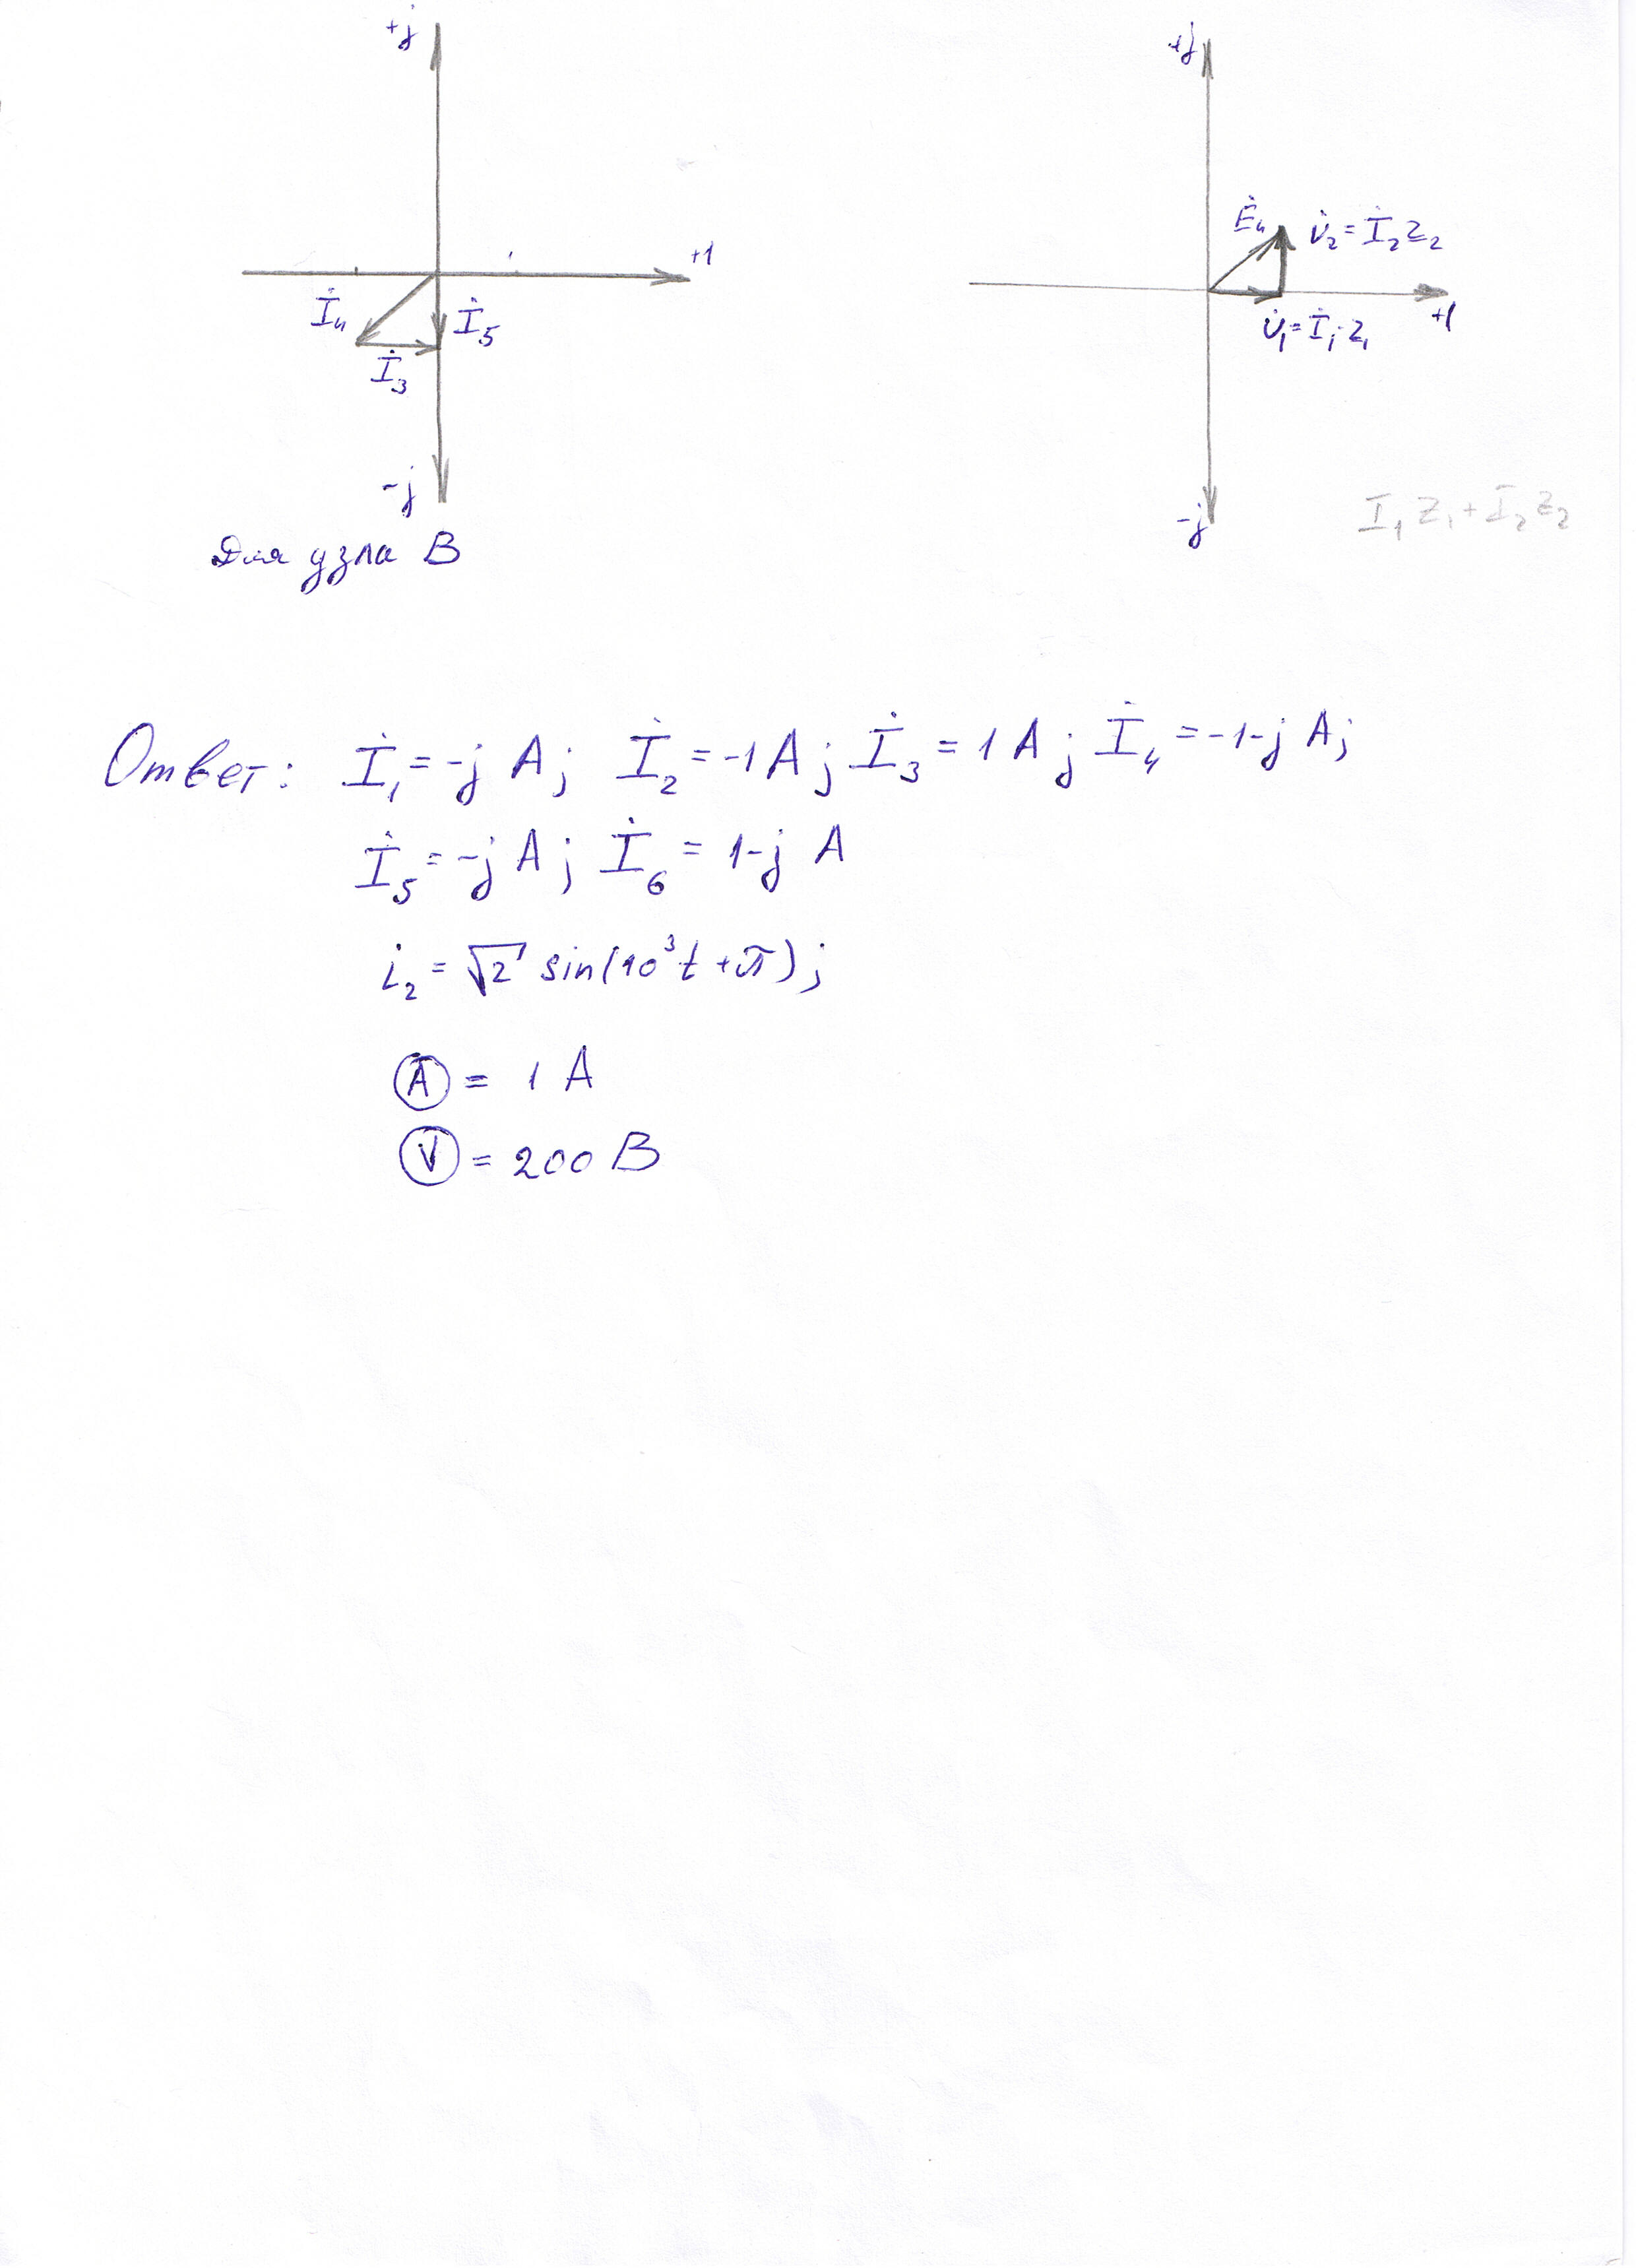 +j
+1
İ₄
İ₅
İ₃
-j
Для узла В
+j
Ė₄
U̇₂ = İ₂ z₂
+1
U̇₁ = İ₁·z₁
-j
I₁ z₁ + I₂ z₂
Ответ: İ₁ = -j A; İ₂ = -1 A; İ₃ = 1 A; İ₄ = -1-j A;
İ₅ = -j A; İ₆ = 1-j A
i₂ = √2 sin(10³t + π);
(A) = 1 A
(V) = 200 В